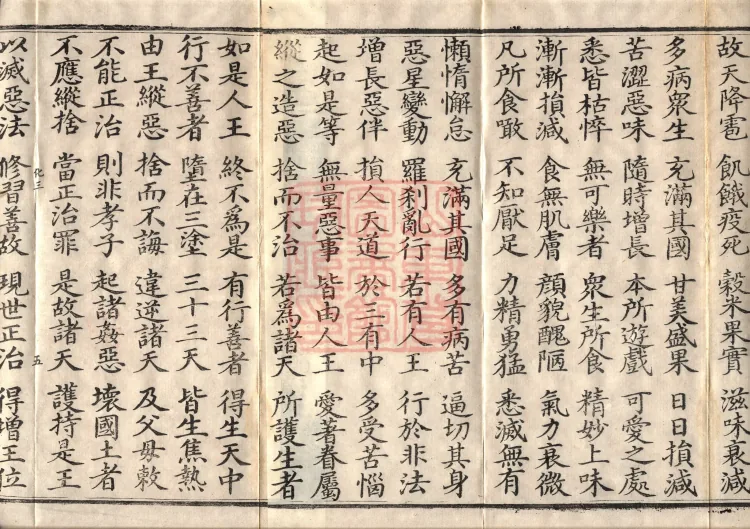 故天降雹 飢餓疫死 穀米果實 滋味衰減
多病衆生 充滿其國 甘美盛果 日日損減
苦澀惡味 隨時增長 本所遊戲 可愛之處
悉皆枯悴 無可樂者 衆生所食 精妙上味
漸漸損減 食無肌膚 顏貌醜陋 氣力衰微
凡所食噉 不知厭足 力精勇猛 悉滅無有
懶惰懈怠 充滿其國 多有病苦 逼切其身
惡星變動 羅剎亂行 若有人王 行於非法
增長惡伴 損人天道 於三有中 多受苦惱
起如是等 無量惡事 皆由人王 愛著眷屬
縱之造惡 捨而不治 若爲諸天 所護生者
如是人王 終不為是 有行善者 得生天中
行不善者 墮在三塗 三十三天 皆生焦熱
由王縱惡 捨而不誨 違逆諸天 及父母敕
不能正治 則非孝子 起諸姦惡 壞國土者
不應縱捨 當正治罪 是故諸天 護持是王
化三 五
以滅惡法 修習善故 現世正治 得增王位